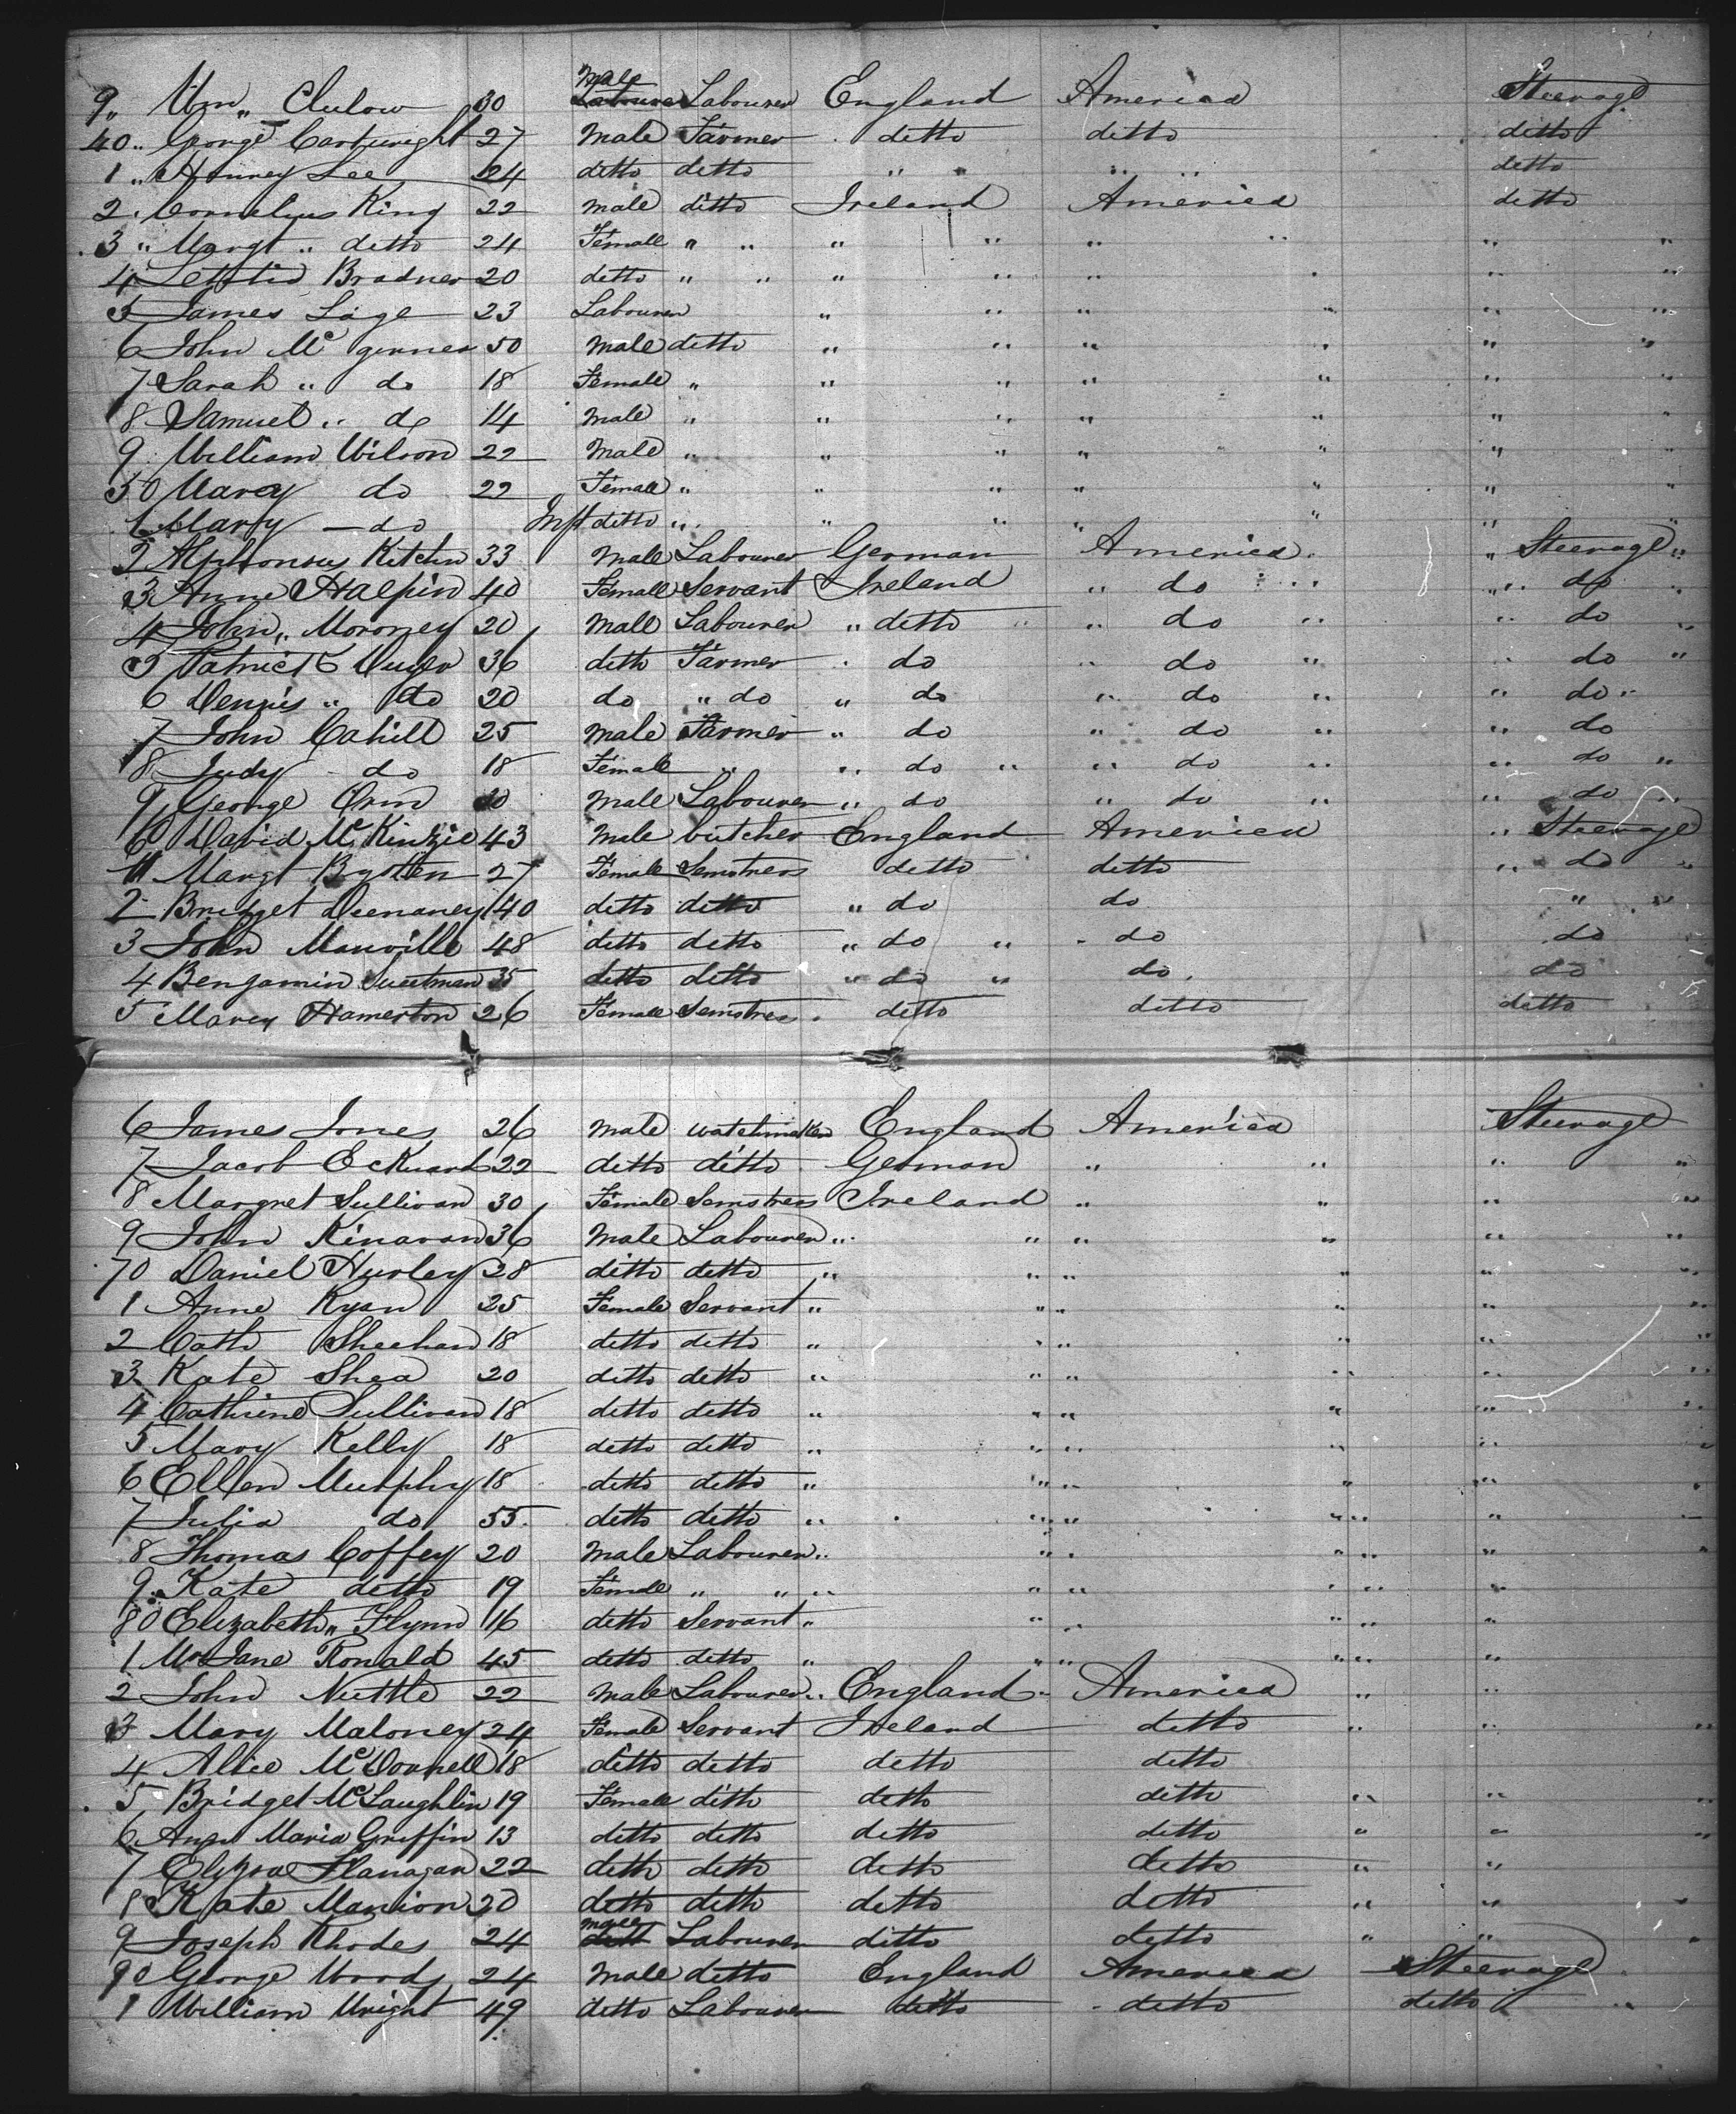 9 " Wm " Clulow 30 Male Labourer Labourer England America Steerage
40 " George Cartwright 27 Male Farmer ditto ditto ditto
1 " Hennrey Lee 24 ditto ditto " " " " ditto
2 " Cornelius King 22 Male ditto Ireland America ditto
3 " Margt " ditto 24 Female " " " " " " " "
4 Letitia Bradner 20 ditto " " " " " " " "
5 James Lage 23 Labourer " " " " " "
6 John Mc 50 Male ditto " " " " " "
7 Sarah " do 18 Female " " " " " " "
8 Samuel " do 14 Male " " " " " " "
9 William Wilson 22 Male " " " " " " "
50 Marey do 22 Female " " " " " " "
1 Mary — do Inft ditto " " " " " " "
2 Alphonsus Kitchn 33 Male Labourer German America " Steerage "
3 Anne Halpin 40 Female Servant Ireland " do " " do
4 John " Moroney 20 Male Labourer " ditto " do " " do "
5 Patrick Dwyer 36 ditto Farmer " do " do " " do "
6 Dennis " do 20 do " do " do " do " " do "
7 John Cahill 25 Male Farmer " do " do " " do
8 Judy do 18 Female " " do " " do " " do "
9 George Orm 30 Male Labourer " do " do " " do "
60 David McKinzie 43 Male butcher England America " Steerage
1 Margt 27 Female Semstress ditto ditto " do "
2 Bridget Deenaney 40 ditto ditto " do do " "
3 John Manville 48 ditto ditto " do " do do
4 Benjamin Sweetman 35 ditto ditto " do " do do
5 Marey Hamerton 26 Female Semstress ditto ditto ditto
6 James Jones 26 Male watchmaker England America Steerage
7 Jacob Eckuard 22 ditto ditto German " " " "
8 Margret Sullivan 30 Female Semstress Ireland " " " "
9 John Kinavan 36 Male Labourer " " " " " "
70 Daniel Hurley 28 ditto ditto " " " " " "
1 Anne Ryan 25 Female Servant " " " " " "
2 Cath Sheehan 18 ditto ditto " " " " " "
3 Kate Shea 20 ditto ditto " " " " " "
4 Cathrine Sullivan 18 ditto ditto " " " " " "
5 Mary Kelly 18 ditto ditto " " " " " "
6 Ellen Murphy 18 ditto ditto " " " " "
7 Julia do 55 ditto ditto " " " " "
8 Thomas Coffey 20 Male Labourer " " " "
9 Kate ditto 19 Female " " " " " " "
80 Elizabeth " Flynn 16 ditto Servant " " " " "
1 Mrs Jane Ronald 45 ditto ditto " " " " "
2 John Nuttle 22 Male Labourer " England America " "
3 Mary Maloney 24 Female Servant Ireland ditto " " "
4 Alice McDonnell 18 ditto ditto ditto ditto
5 Bridget McLaughlin 19 Female ditto ditto ditto " " "
6 Ann Maria Griffin 13 ditto ditto ditto ditto " " "
7 Elizae Flanagan 22 ditto ditto ditto ditto " "
8 Kate Manion 20 ditto ditto ditto ditto " " "
9 Joseph Rhodes 24 male ditto Labourer ditto ditto " " "
90 George Woods 24 Male ditto England America Steerage
1 William Wright 49 ditto Labourer ditto ditto ditto "